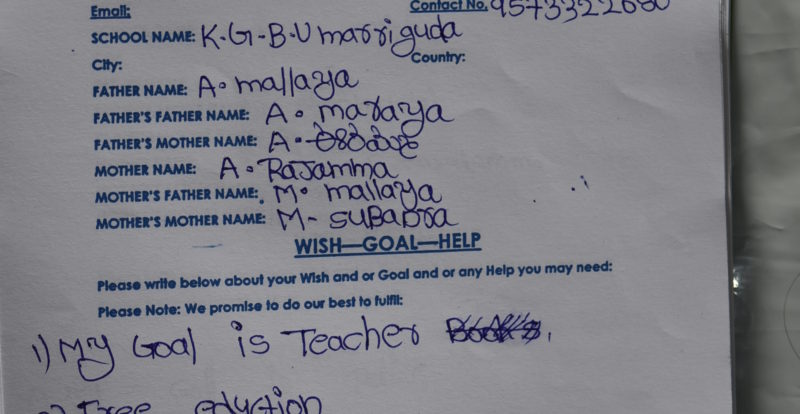 Email: Contact No. 9573322680
SCHOOL NAME: K.G-B.U marriguda
City: Country:
FATHER NAME: A. mallaya
FATHER'S FATHER NAME: A. maraya
FATHER'S MOTHER NAME: A.
MOTHER NAME: A. Rajamma
MOTHER'S FATHER NAME: M. mallaya
MOTHER'S MOTHER NAME: M- SUBADRA
WISH—GOAL—HELP
Please write below about your Wish and or Goal and or any Help you may need:
Please Note: We promise to do our best to fulfil:
1) My Goal is Teacher
eduction